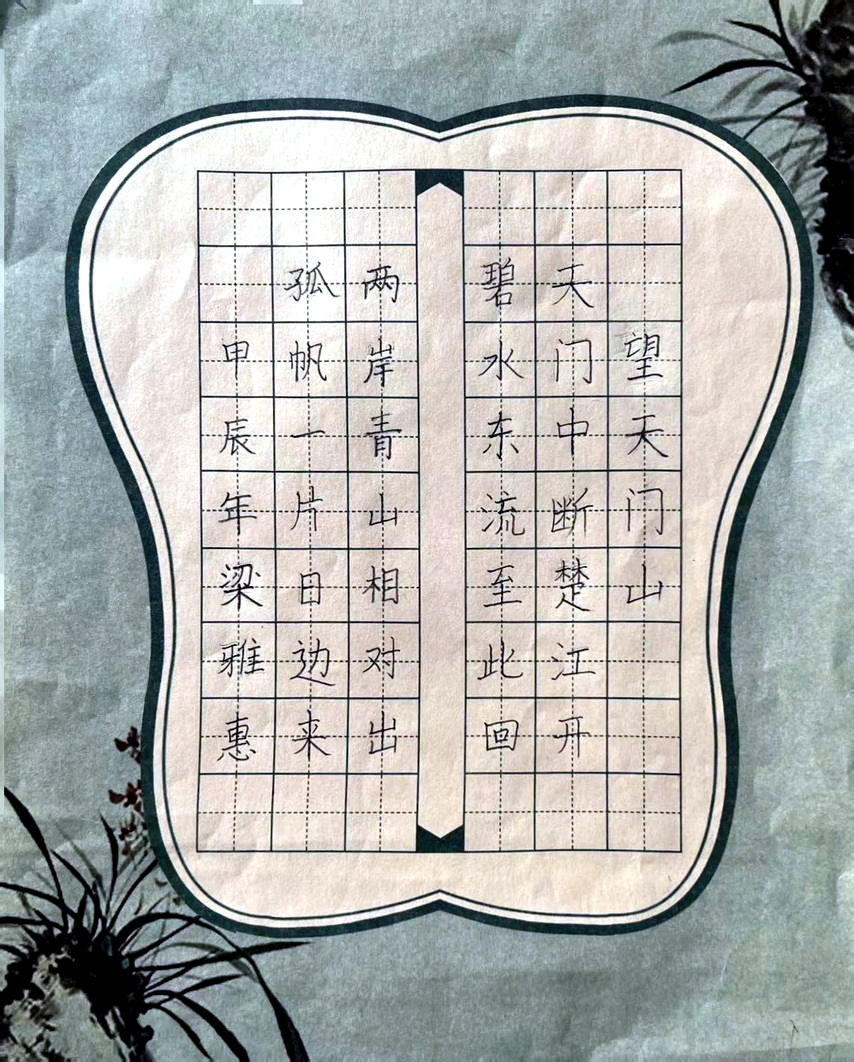 望天门山
天门中断楚江开
碧水东流至此回
两岸青山相对出
孤帆一片日边来
甲辰年梁雅惠